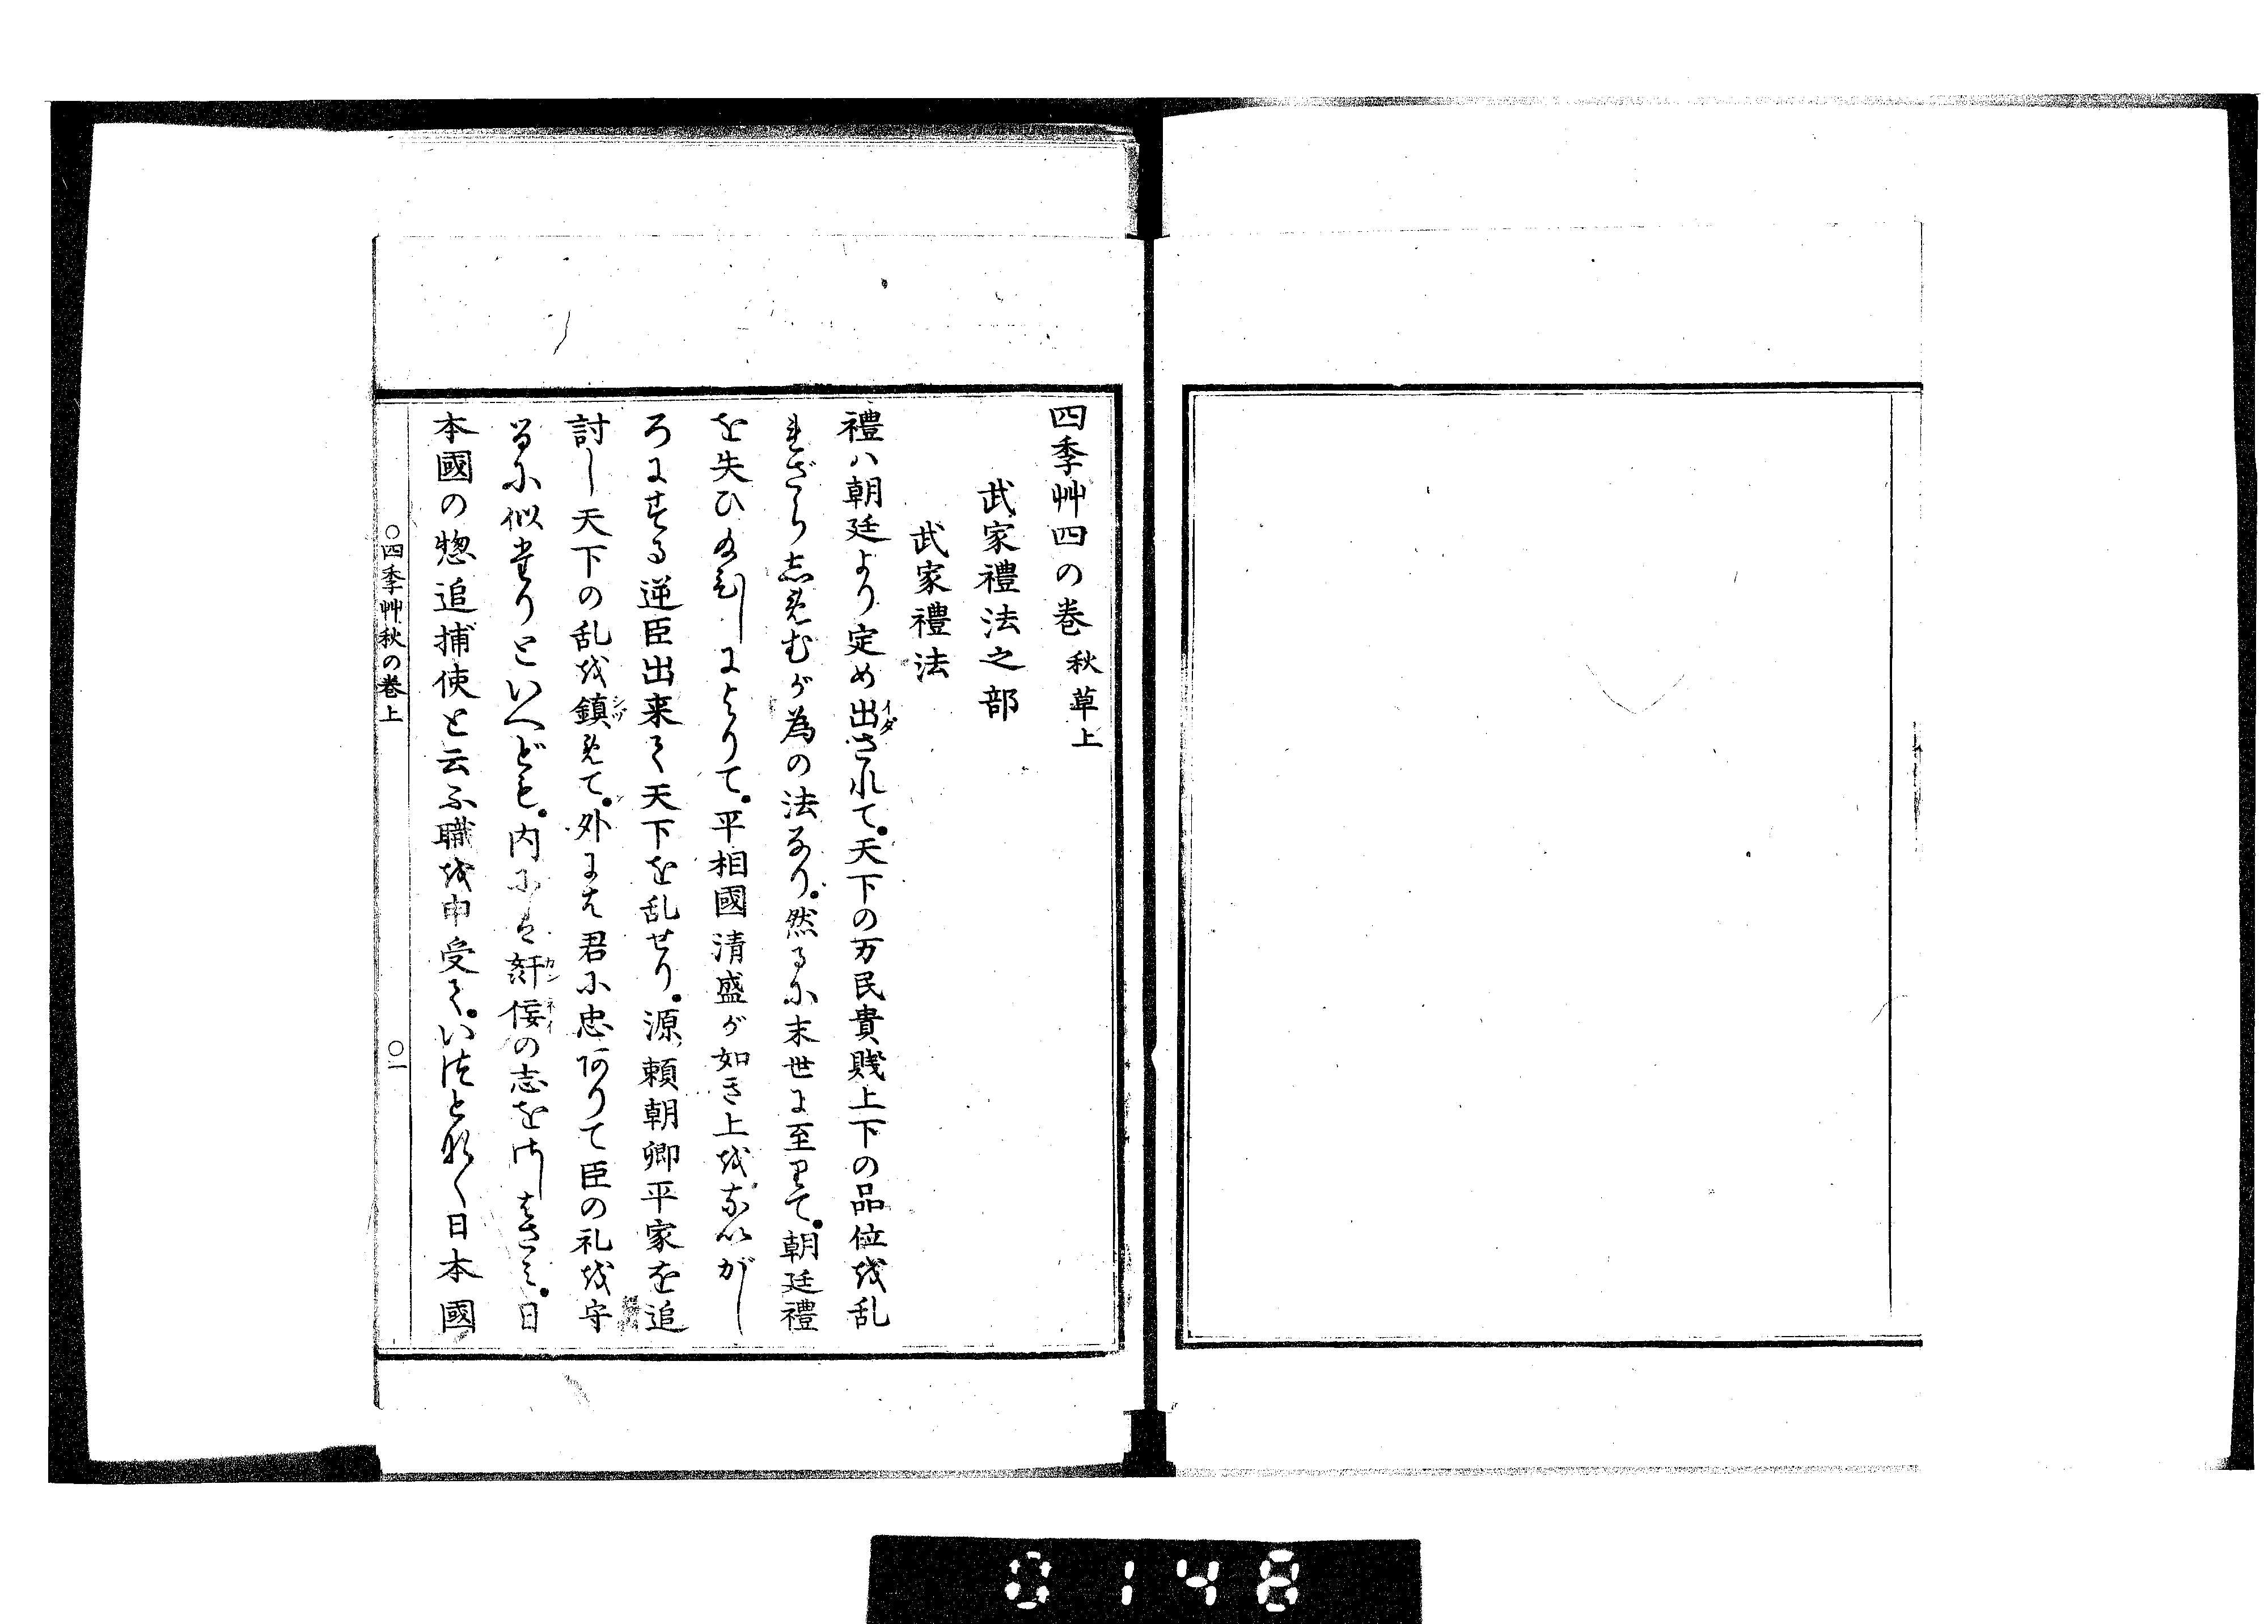 四季艸四の巻 秋草上
武家禮法之部
武家禮法
禮ハ朝廷より定め出イダされて。天下の万民貴賎上下の品位を乱
れざらしめむが為の法なり。然るに末世に至りて。朝廷禮
を失ひ給ひしによりて。平相國清盛が如き上をないがし
ろにする逆臣出来て天下を乱せり。源頼朝卿平家を追
討し天下の乱を鎮シヅめて。外には君に忠ありて臣の礼を守
るに似たりといへども。内には姧カン佞ネイの志をさしはさみ。日
本國の惣追捕使と云ふ職を申受て。いつとなく日本國
○四季艸秋の巻上
○一
0148